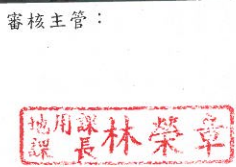 審核主管：
地用課
課長林榮章